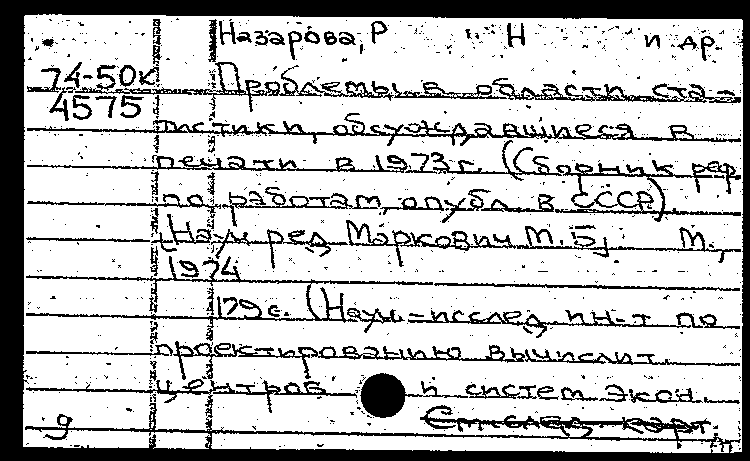 Назарова, Р Н и др.
74-50к Проблемы в области ста-
4575
тистики, обсуждавшиеся в
печати в 1973 г. (Сборник реф.
по работам, опубл. в СССР).
[Науч. ред. Маркович М. Б.] М.,
1974
179 с. (Науч.-исслед. ин-т по
проектированию вычислит.
центров и систем экон.
См. след. карт.
9